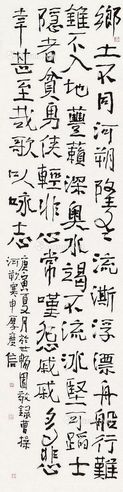 鄉土不同河朔隆冬流澌浮漂舟船行難
錐不入地豐藾深奧水竭不流冰堅可蹈士
隱者貧勇俠輕非心常嘆怨戚戚多悲
幸甚至哉歌以咏志
庚寅夏月於敬錄曹操
河朔寒申